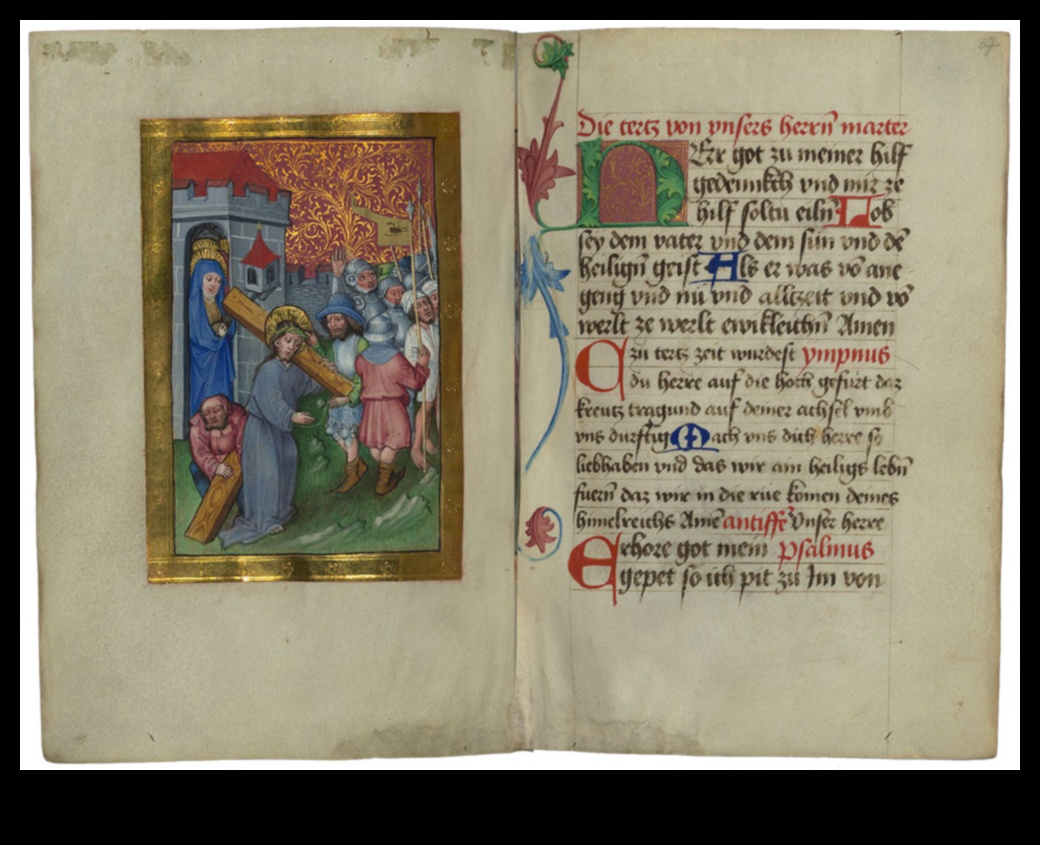 67
Die tertz von vnsers herrn̄ marter
HErr got zu meiner hilf
gedennkch vnd mir ze
hilf soltu eiln̄ Lob
sey dem vater vnd dem sun vnd dē
heilign̄ geist Als er was vō ane
geng vnd nu vnd alltzeit vnd vō
werlt ze werlt ewikleichn̄ Amen
Czu tertz zeit wurdest ympnus
du herre auf die hoch gefurt daz
kreutz tragund auf deiner achsel vmb
vns durftig Mach vns dich herre so
liebhaben vnd das wir am heiligs lebn̄
fuern daz wir in die rue komen deines
himelreichs Amē antiffē Vnser herre
Erhore got mein psalmus
gepet so ich pit zu Im von